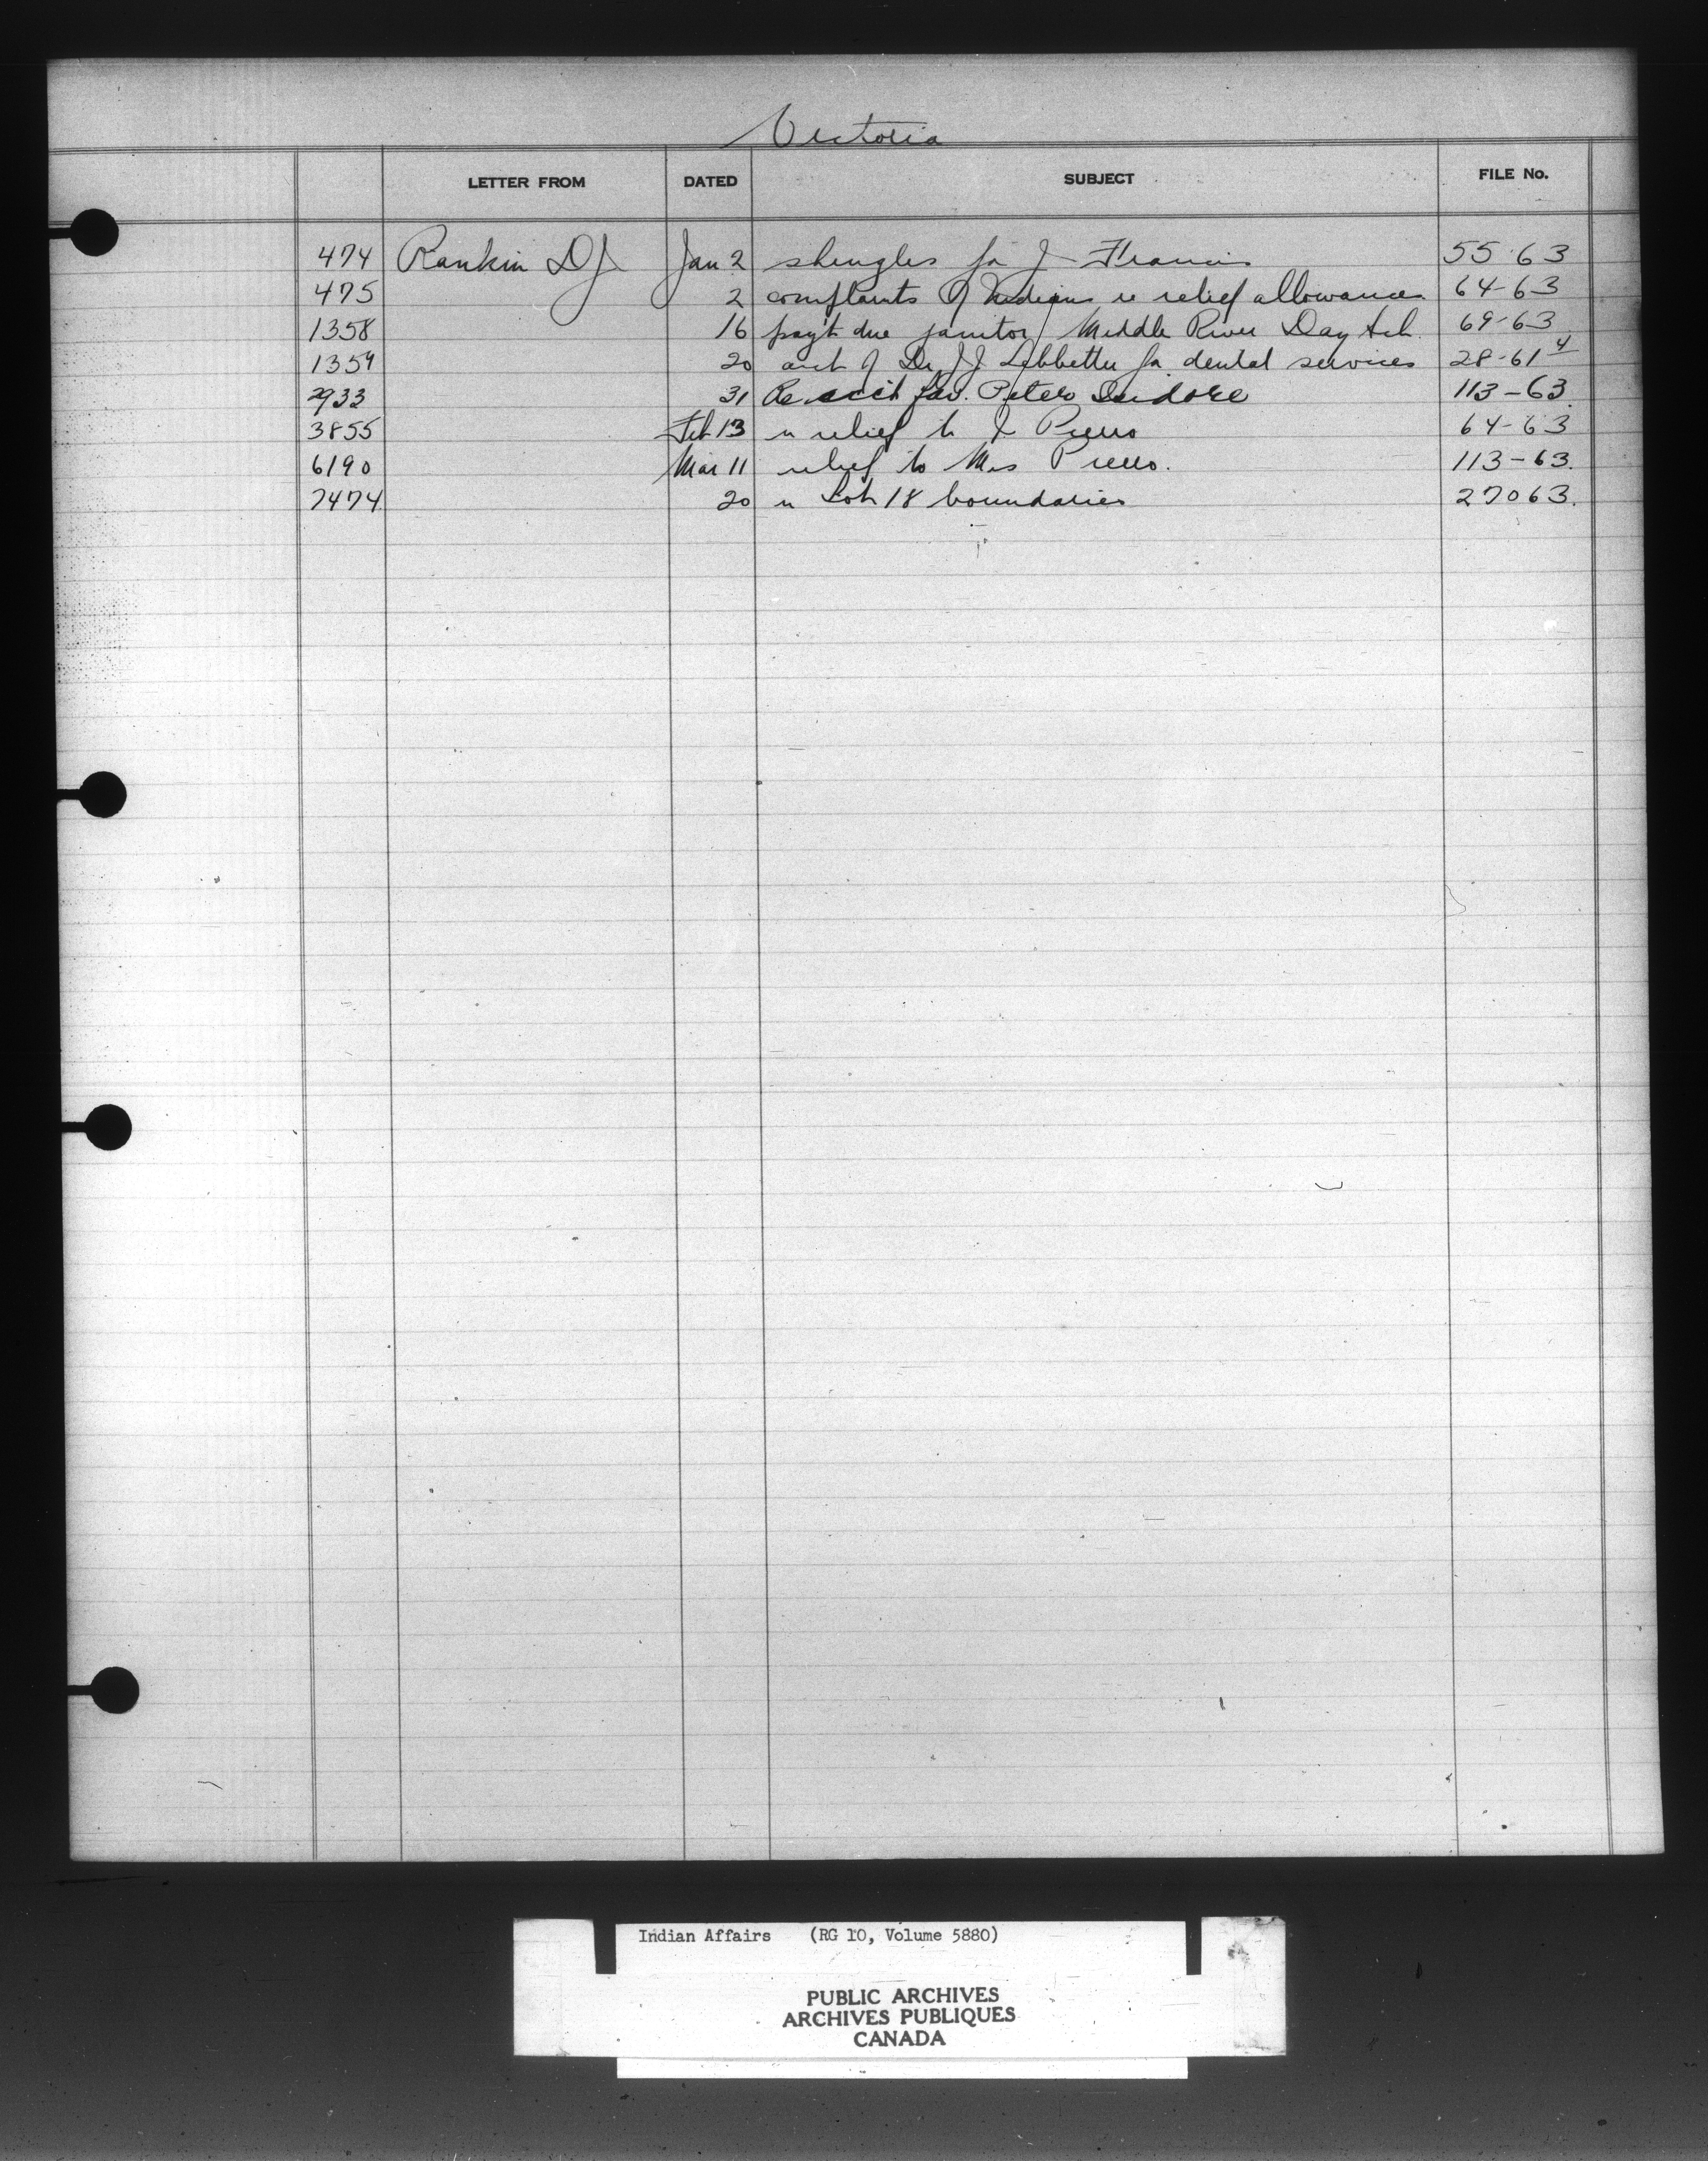 Victoria
LETTER FROM DATED SUBJECT FILE No.
474 Rankin D J Jan 2 shingles for J Francis 55-63
475 2 complaints of Indians re relief allowances 64-63
1358 16 pay't due janitor Middle River Day Sch. 69-63
1359 20 acct of Dr J J Lebbetter for dental services 28-61 4
2933 31 Re acct fav. Peter Isidore 113-63.
3855 Feb 13 re relief to J Pierro 64-63
6190 Mar 11 relief to Mrs Pierro. 113-63.
7474 20 re Lot 18 boundaries 27063.
Indian Affairs (RG 10, Volume 5880)
PUBLIC ARCHIVES
ARCHIVES PUBLIQUES
CANADA